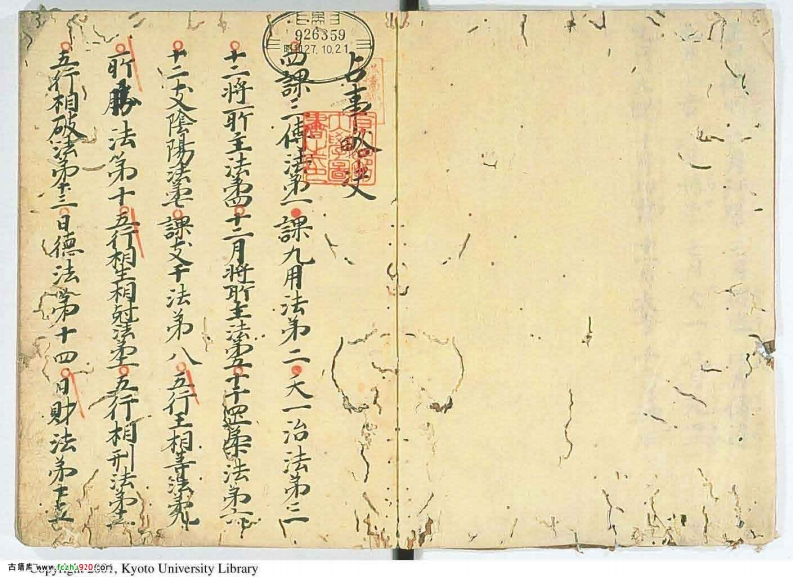 占事略决
四課三傳法第一 課九用法第二 天一治法第三
十二將所主法第四 十二月將所主法第五 十干罡柔法第六
十二支陰陽法第七 課支干法第八 五行王相等法第九
所勝法第十 五行相生相尅法第十一 五行相刑法第十二
五行相破法第十三 日德法第十四 日財法第十五
926359
27.10.21
Copyright 2001, Kyoto University Library